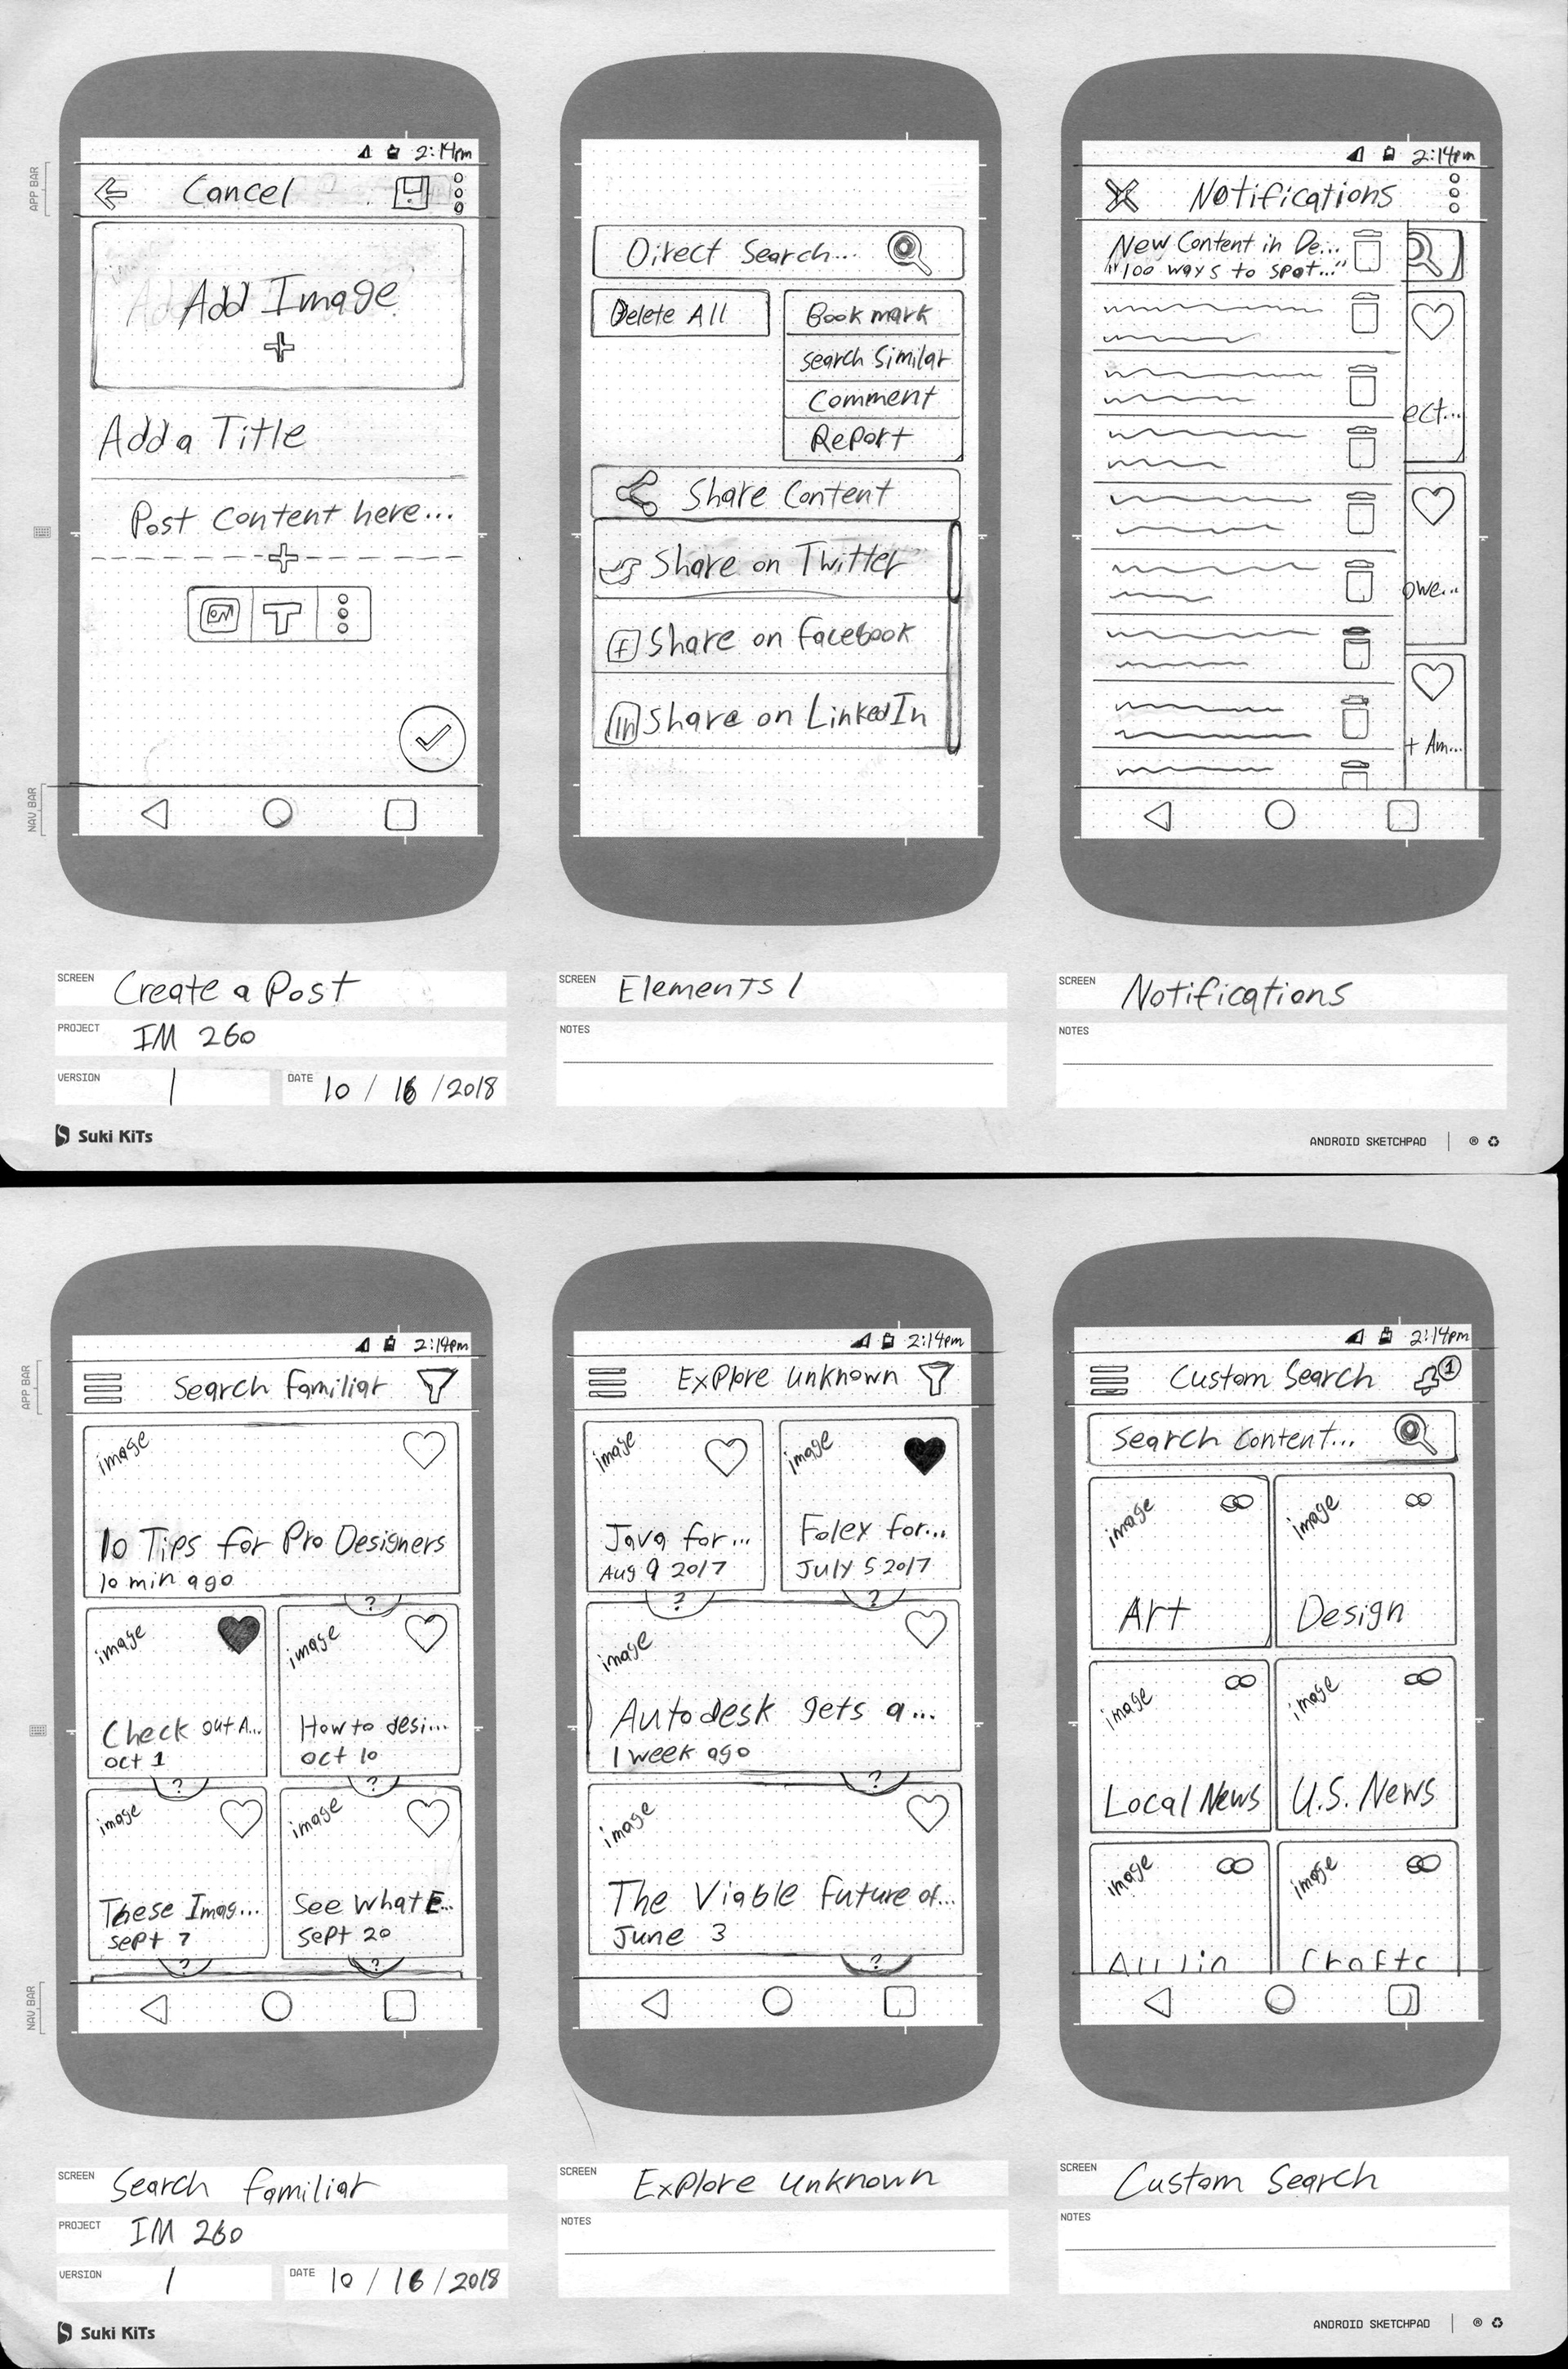 APP BAR
NAV BAR
2:14pm
Cancel
Add Image
Add a Title
Post Content here...
T
SCREEN Create a Post
PROJECT IM 260
VERSION 1 DATE 10 / 16 / 2018
Suki KiTs
Direct Search...
Delete All
Bookmark
Search Similar
Comment
Report
Share Content
Share on Twitter
f Share on Facebook
in Share on LinkedIn
SCREEN Elements 1
NOTES
2:14pm
Notifications
New Content in De...
"100 ways to spot..."
ect...
owe...
+ Am...
SCREEN Notifications
NOTES
ANDROID SKETCHPAD
APP BAR
NAV BAR
2:14pm
Search Familiar
image
10 Tips for Pro Designers
10 min ago
?
image
Check out A...
Oct 1
?
image
How to desi...
Oct 10
?
image
These Imag...
Sept 7
?
image
See What E...
Sept 20
?
SCREEN Search Familiar
PROJECT IM 260
VERSION 1 DATE 10 / 16 / 2018
Suki KiTs
2:14pm
Explore Unknown
image
Java for...
Aug 9 2017
?
image
Folex for...
July 5 2017
?
image
Autodesk gets a...
1 week ago
?
image
The Viable Future of...
June 3
?
SCREEN Explore Unknown
NOTES
2:14pm
Custom Search 1
Search Content...
image
Art
image
Design
image
Local News
image
U.S. News
image
image
SCREEN Custom Search
NOTES
ANDROID SKETCHPAD